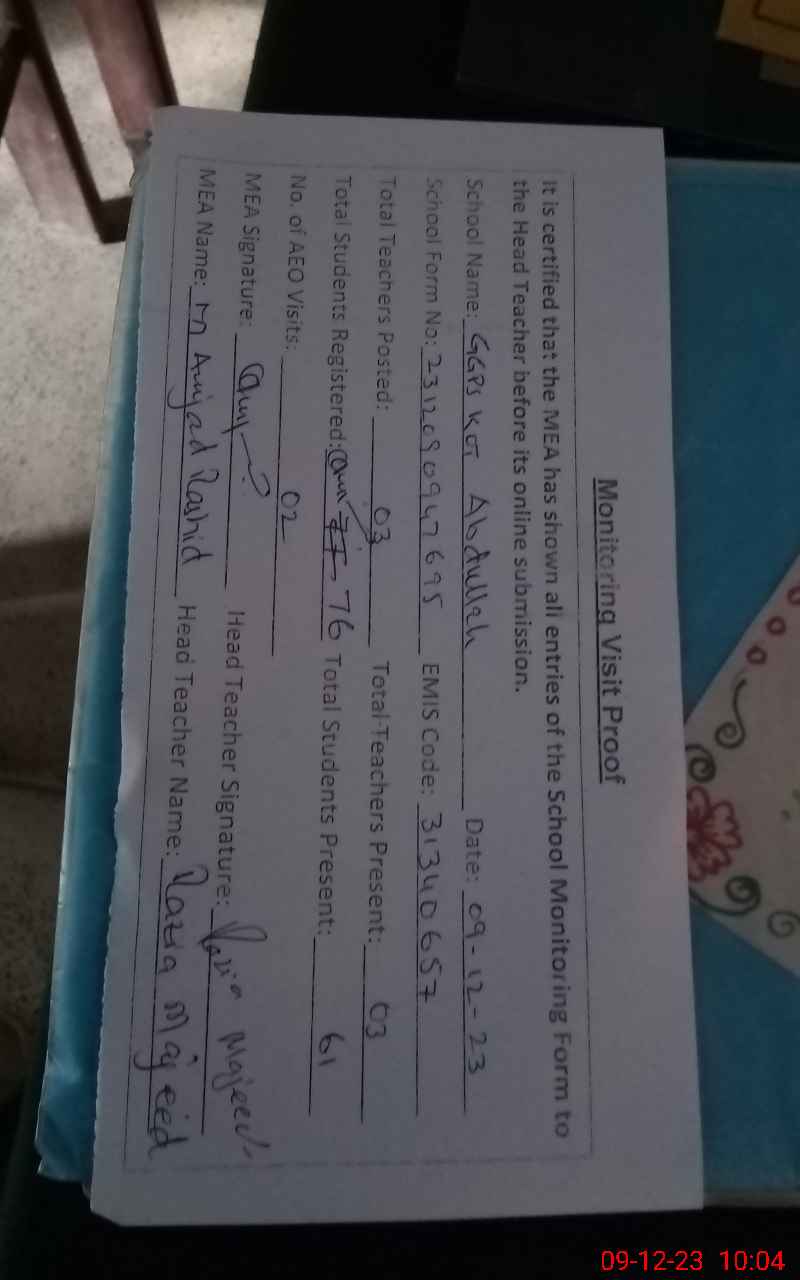 Monitoring Visit Proof
It is certified that the MEA has shown all entries of the School Monitoring Form to
the Head Teacher before its online submission.
School Name: GGPS Kot Abdullah Date: 09-12-23
School Form No: 2312090947695 EMIS Code: 31340657
Total Teachers Posted: 03 Total Teachers Present: 03
Total Students Registered: 77 76 Total Students Present: 61
No. of AEO Visits: 02
MEA Signature: Head Teacher Signature: Razia Majeed
MEA Name: M Amjad Rashid Head Teacher Name: Razia Majeed
09-12-23 10:04